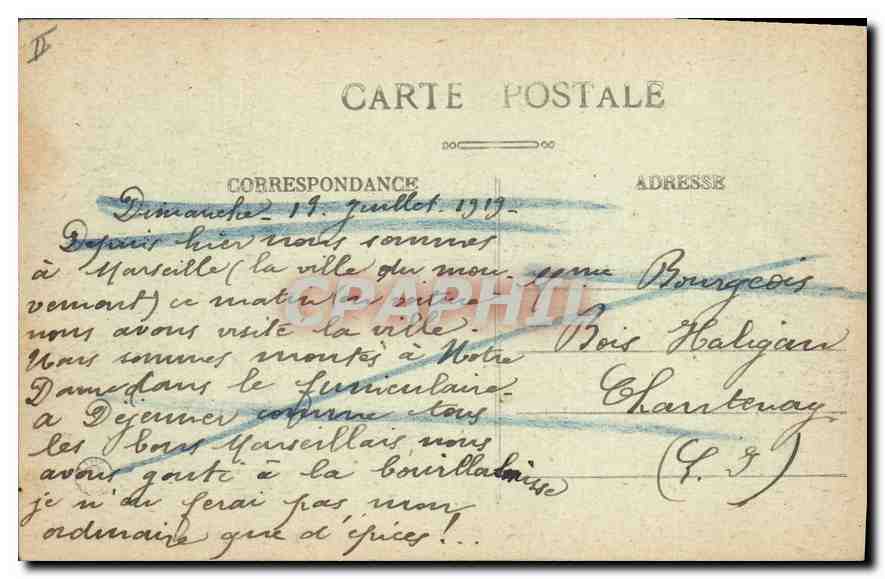 II
CARTE POSTALE
CORRESPONDANCE
ADRESSE
Dimanche - 19. juillet. 1919 -
Depuis hier nous sommes
à Marseille (la ville du mou-
vement) ce matin en voiture
nous avons visité la ville.
Nous sommes montés à Notre
Dame dans le funiculaire -
a Déjeuner comme tous
les bons Marseillais nous
avons gouté à la bouillabaisse
je n'en ferai pas mon
ordinaire que d'épices!...
Mme Bourgeois
Bois Haligan
Chantenay
(L. I)
CPAPHIL